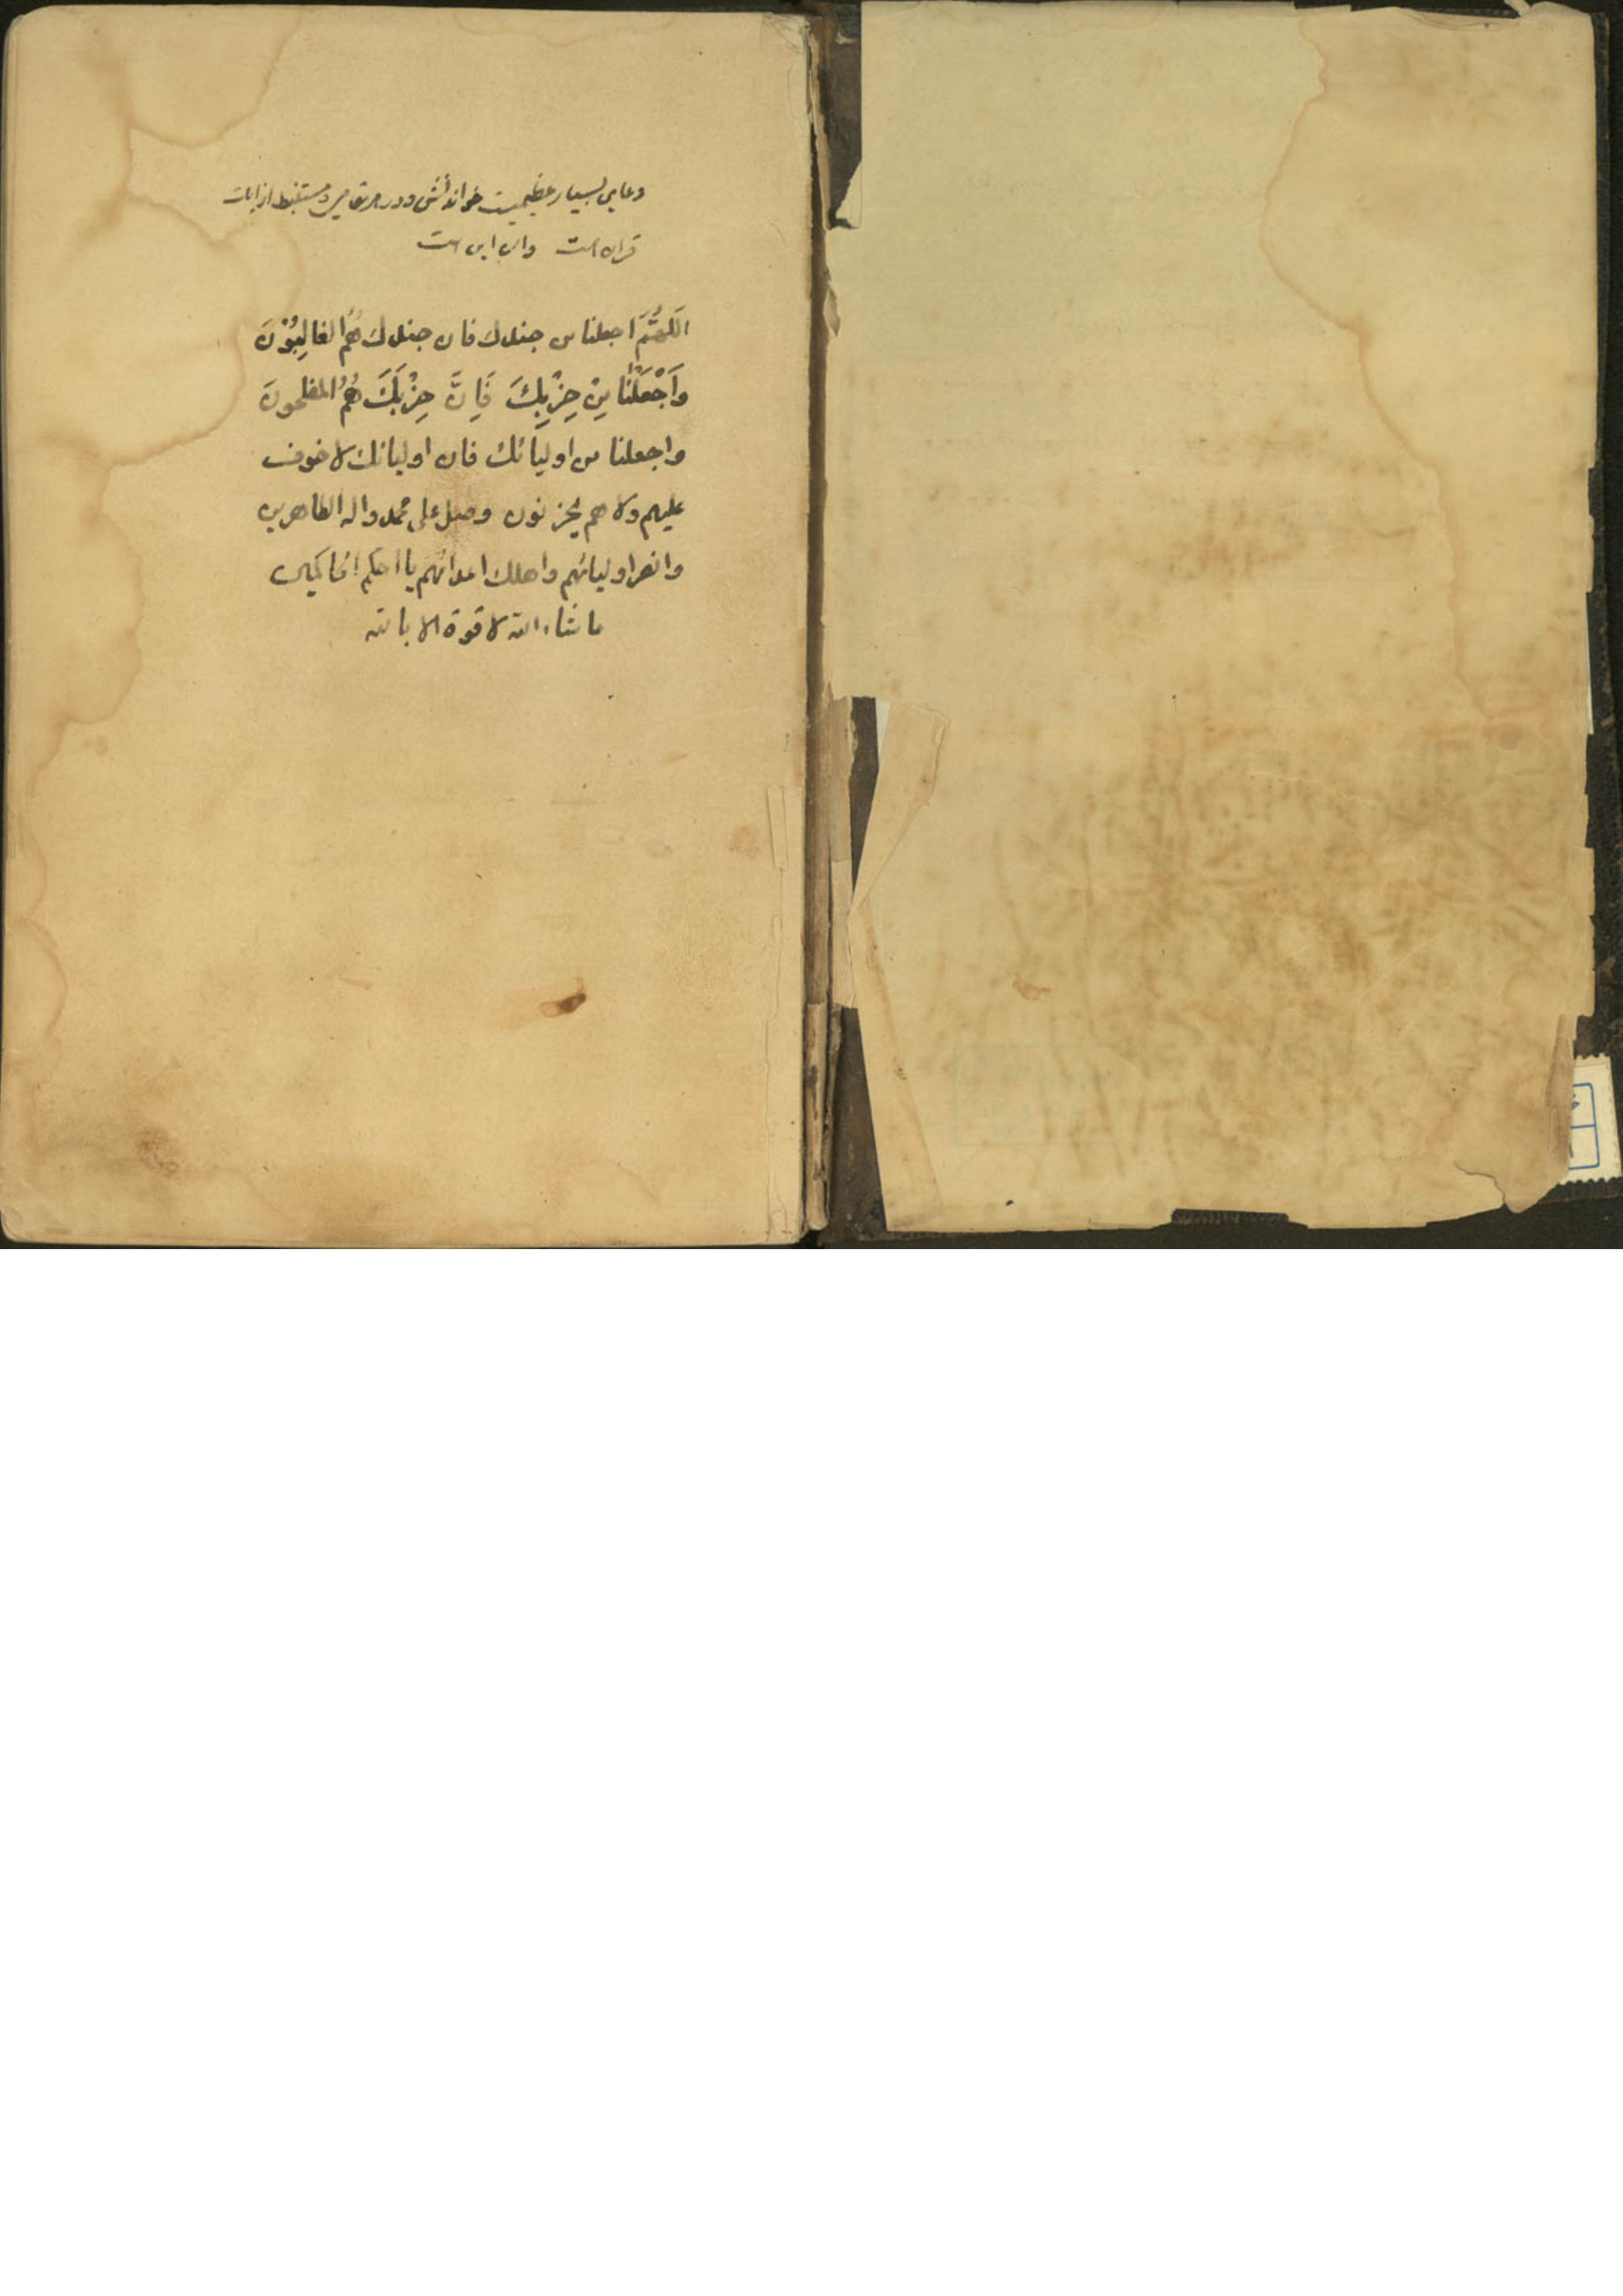 دعایی بسیار عظیمیست خواندنش در هر مقامی و مستنبط از ایات
قران است و ان این است
اَللّهُمَّ اجعلنا من جندك فان جندك هُمُ الغالِبُوْنَ
وَاَجْعَلْنٰا مِنْ حِزْبِكَ فَاِنَّ حِزْبَكَ هُمُ المفلحونَ
واجعلنا من اوليائك فان اوليائك لا خوف
عليهم ولا هم يحزنون وصل على محمد واله الطاهرين
وانصر اوليائهم واهلك اعدائهم يا احكم الحاكمين
ما شاء الله لا قوة الا بالله